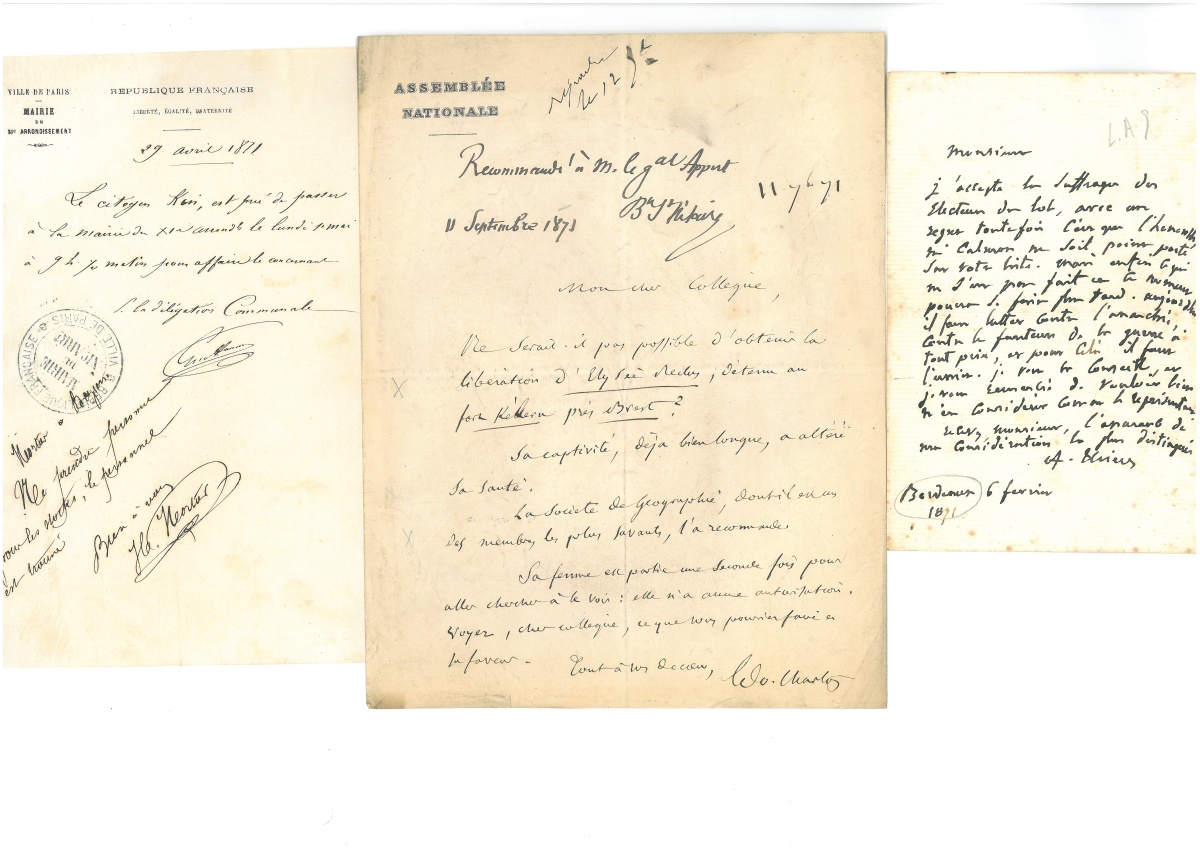 VILLE DE PARIS
MAIRIE
DU
ARRONDISSEMENT
REPUBLIQUE FRANÇAISE
LIBERTÉ, ÉGALITÉ, FRATERNITÉ
29 avril 1871
Le citoyen est prié de passer
à la mairie du XIe arrondt le lundi 1er mai
à 9 h matin pour affaire le concernant
la délégation Communale
VILLE DE PARIS
MAIRIE
Ne prendre personne
pour les le personnel
est trouvé
Bien à vous
ASSEMBLÉE
NATIONALE
répondre
le 12
Recommandé à M. le gal Appert
11 7bre 71
11 Septembre 1871
Mon cher Collègue,
Ne serait-il pas possible d'obtenir la
libération d'Elysée Reclus, détenu au
fort Kélern près Brest ?
Sa captivité, déjà bien longue, a altéré
sa santé.
La Société de Géographie, dont il est un
des membres les plus savants, l'a recommandé
Sa femme est partie une seconde fois pour
aller chercher à le voir : elle n'a aucune autorisation.
Voyez, cher collègue, ce que vous pourriez faire en
sa faveur - Tout à vous de cœur, Edo. Charton
L.A.S
Monsieur
j'accepte les suffrages des
Electeurs du Lot, avec un
regret toutefois c'est que l'honorable
M. Calmon ne soit point porté
sur votre liste. mais enfin ce qui
ne s'est pas fait en ce moment
pourra se faire plus tard. aujourd'hui
il faut lutter contre l'anarchie,
contre les fauteurs de la guerre à
tout prix, et pour cela il faut
s'unir. je vous le conseille, et
je vous remercie de vouloir bien
m'en considérer comme le représentant
recevez monsieur, l'assurance de
ma considération la plus distinguée
A. Thiers
Bordeaux 6 fevrier
1871